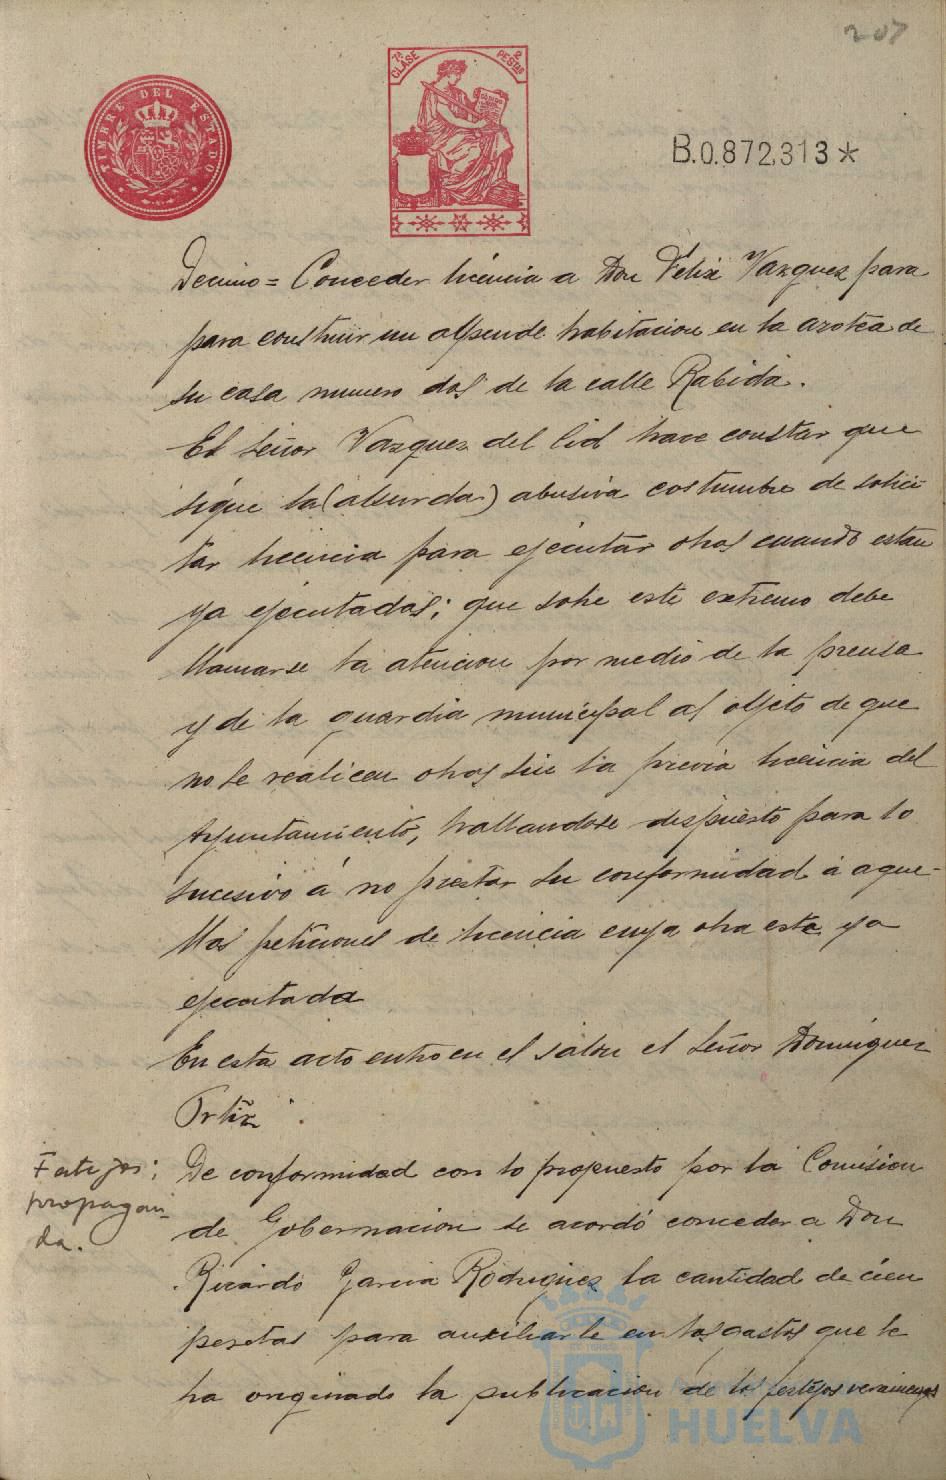 207
TIMBRE DEL ESTADO
7ª CLASE 2 PESTAS
B.0.872,313*
Decimo = Conceder licencia a Don Félix Vazquez para
para construir un alpende habitacion en la azotea de
su casa numero dos de la calle Rabida.
El Señor Vazquez del Cid hace constar que
sigue la (absurda) abusiva costumbre de solici-
tar licencia para ejecutar obras cuando estan
ya ejecutadas; que sobre este extremo debe
llamarse la atencion por medio de la prensa
y de la guardia municipal al objeto de que
no se realicen obras sin la previa licencia del
Ayuntamiento, hallandose dispuesto para lo
sucesivo á no prestar su conformidad á aque-
llas peticiones de licencia cuya obra esta ya
ejecutada
En esta acto entro en el salon el Señor Dominguez
Ortiz.
Festejos;
propagan-
da.
De conformidad con lo propuesto por la Comision
de Gobernacion se acordó conceder a Don
Ricardo Garcia Rodriguez la cantidad de cien
pesetas para auxiliarle en los gastos que le
ha originado la publicacion de los festejos veraniegos
HUELVA